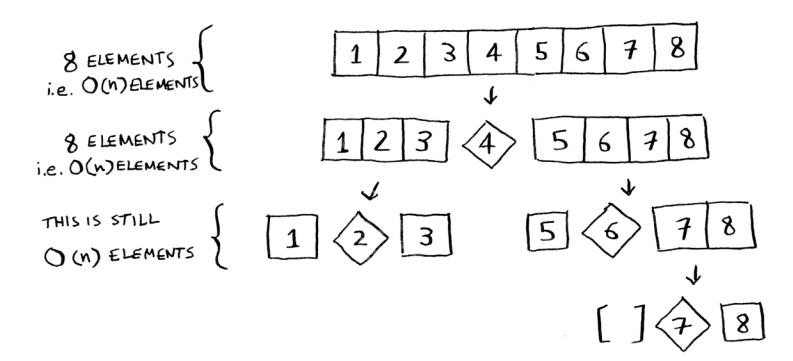 8 ELEMENTS
i.e. O(n) ELEMENTS
1 2 3 4 5 6 7 8
8 ELEMENTS
i.e. O(n) ELEMENTS
1 2 3 4 5 6 7 8
THIS IS STILL
O(n) ELEMENTS
1 2 3 5 6 7 8
[ ] 7 8